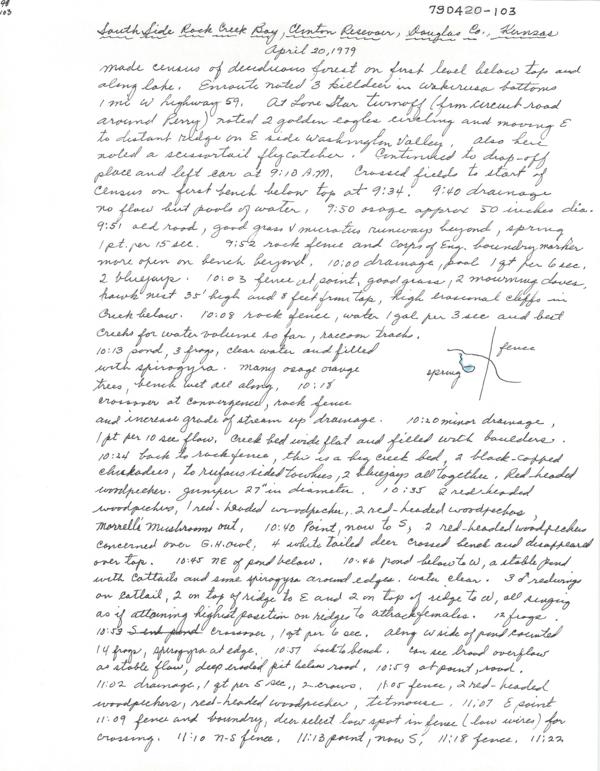 98
103
790420-103
South Side Rock Creek Bay, Clinton Resevoir, Douglas Co., Kansas
April 20, 1979
made census of deciduous forest on first level below top and
along lake. Enroute noted 3 killdeer in Wakarusa bottoms
1 mi W highway 59. At Lone Star turnoff (from circuit road
around Perry) noted 2 golden eagles circling and moving E
to distant ridge on E side Washington Valley. Also here
noted a scissortail flycatcher. Continued to drop-off
place and left car at 9:10 A.M. Crossed fields to start of
census on first bench below top at 9:34. 9:40 drainage
no flow but pools of water, 9:50 osage approx 50 inches dia.
9:51 old road, good grass & microtus runways beyond, spring
1 pt. per 15 sec. 9:52 rock fence and Corps of Eng. boundry marker
more open on bench beyond. 10:00 drainage, pool 1 qt per 6 sec,
2 bluejays. 10:03 fence at point, good grass, 2 mourning doves,
hawk nest 35' high and 8 feet from top, high erosional cliffs in
Creek below. 10:08 rock fence, water 1 gal per 3 sec and best
Creeks for water volume so far, raccoon tracks.
10:13 pond, 3 frogs, clear water and filled
with spirogyra. many osage orange
trees, bench wet all along, 10:18
crossover at convergence, rock fence
spring
fence
and increase grade of stream up drainage. 10:20 minor drainage,
1 pt per 10 sec flow. Creek bed wide flat and filled with boulders.
10:24 back to rock fence, this is a big creek bed, 2 black-capped
chickadees, to rufous sided towhees, 2 bluejays all together. Red-headed
woodpecker. juniper 27" in diameter. 10:35 2 red-headed
woodpeckers, 1 red-headed woodpecker, 2 red-headed woodpeckers,
Morrelle Mushrooms out, 10:40 Point, now to S, 2 red-headed woodpeckers
concerned over G.H. owl, 4 white tailed deer crossed bench and disappeared
over top. 10:45 NE of pond below. 10:46 pond below to W, a stable pond
with Cattails and some spirogyra around edges. water clear. 3 ♂ redwings
on cattail, 2 on top of ridge to E and 2 on top of ridge to W, all singing
as if attaining highest position on ridges to attract females. 12 frogs.
10:53 S end pond crossover, 1 qt per 6 sec. along W side of pond counted
14 frogs, spirogyra at edge. 10:57 back to bench. Can see broad overflow
as stable flow, deep eroded pit below road, 10:59 at point, road.
11:02 drainage, 1 qt per 5 sec., 2 crows. 11:05 fence, 2 red-headed
woodpeckers, red-headed woodpecker, titmouse. 11:07 E point
11:09 fence and boundry, deer select low spot in fence (low wires) for
crossing. 11:10 N-S fence. 11:13 point, now S, 11:18 fence. 11:22